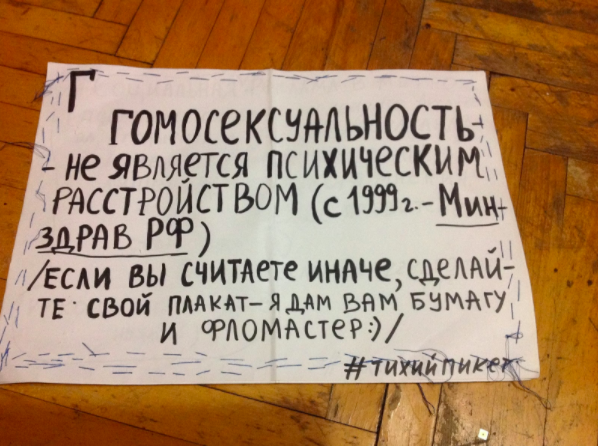 Г
ГОМОСЕКСУАЛЬНОСТЬ-
- НЕ ЯВЛЯЕТСЯ ПСИХИЧЕСКИМ
РАССТРОЙСТВОМ (с 1999 г. - Мин-
ЗДРАВ РФ)
/ЕСЛИ ВЫ СЧИТАЕТЕ ИНАЧЕ, СДЕЛАЙ-
ТЕ СВОЙ ПЛАКАТ - Я ДАМ ВАМ БУМАГУ
И ФЛОМАСТЕР:)/
#тихийпикет